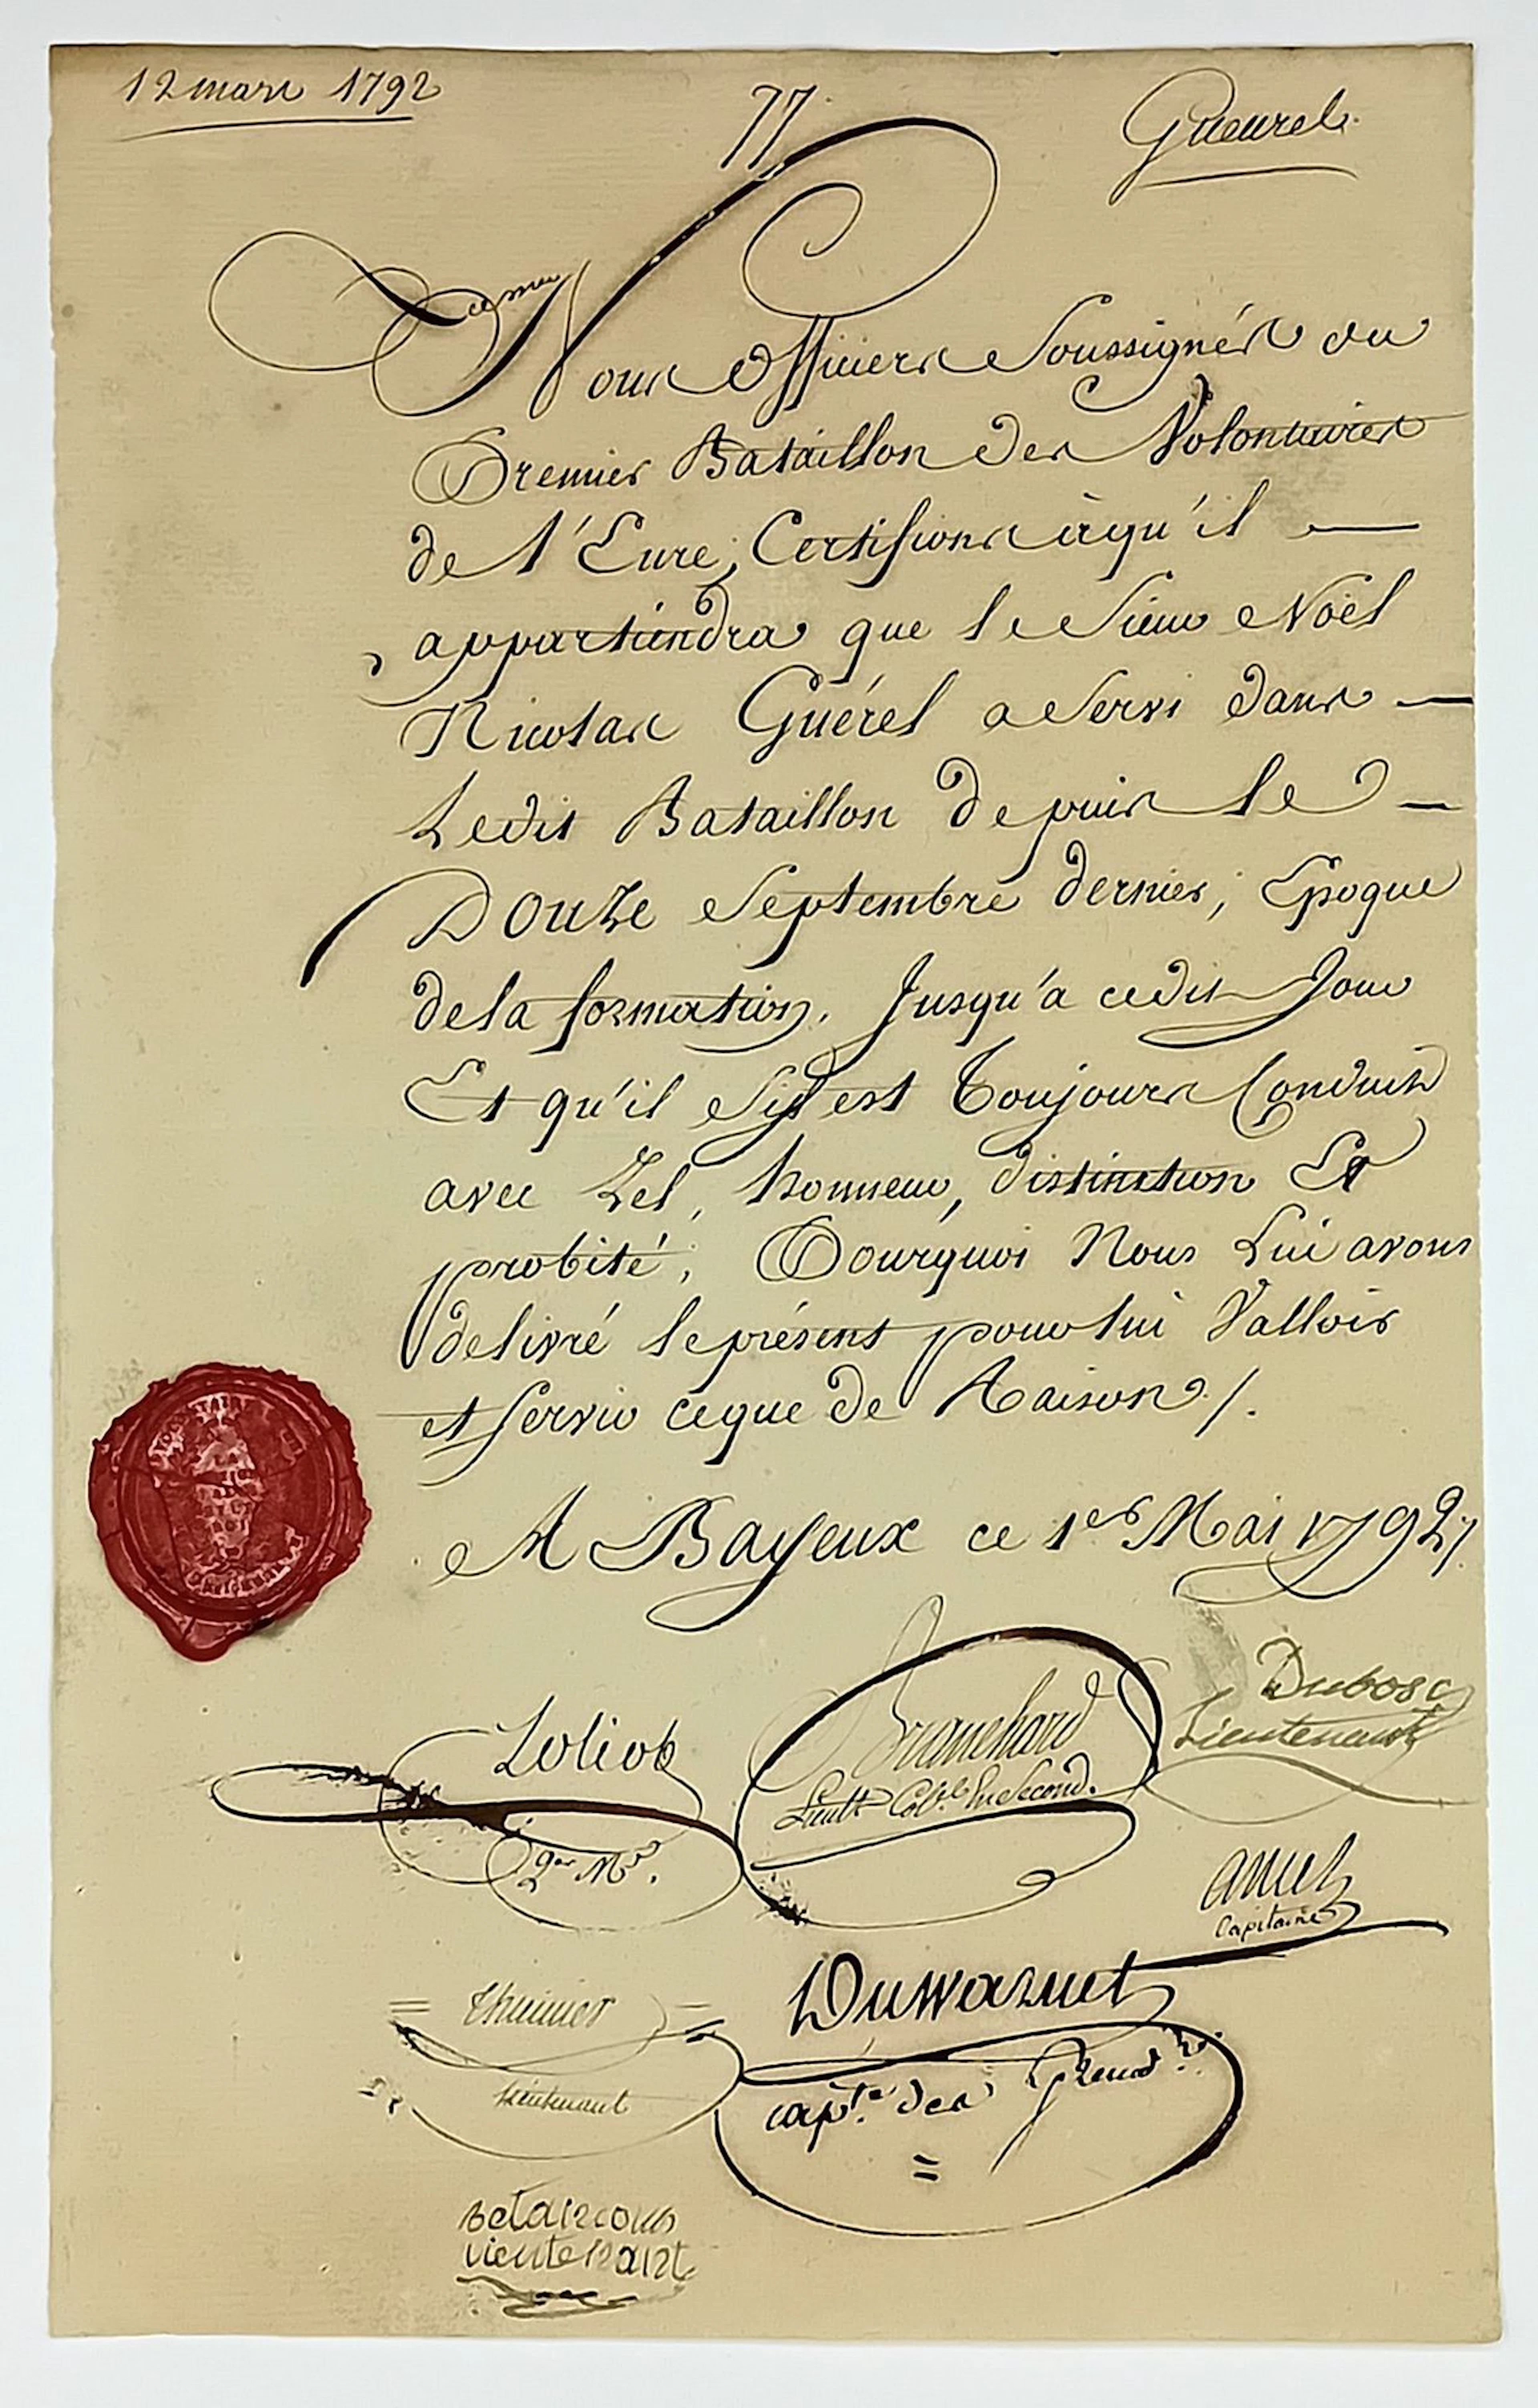 12 mars 1792
77.
Gueurel.
Nous Officiers Soussignés du
Premier Bataillon des Volontaires
de l'Eure, Certifions àqu'il
appartiendra que le Sieur Noël
Nicolas Guérel a Servi dans
Ledit Bataillon depuis le
Douze Septembre dernier, Epoque
de la formation, Jusqu'a cedit Jour
Et qu'il s'y est Toujours Conduit
avec Zel, honneur, distinction Et
probité; Pourquoi Nous Lui avons
delivré le présent pour lui Valloir
et servir ceque de Raison /.
A Bayeux ce 1er Mai 1792 /.
Dubosc
Lieutenant
Loliot
Branchard
Lieutt Colel En Second.
Qer Me.
amet
capitaine
Duwarnet
Thuinier
capte des Grendrs.
lieutenant
betancours
lieutenant